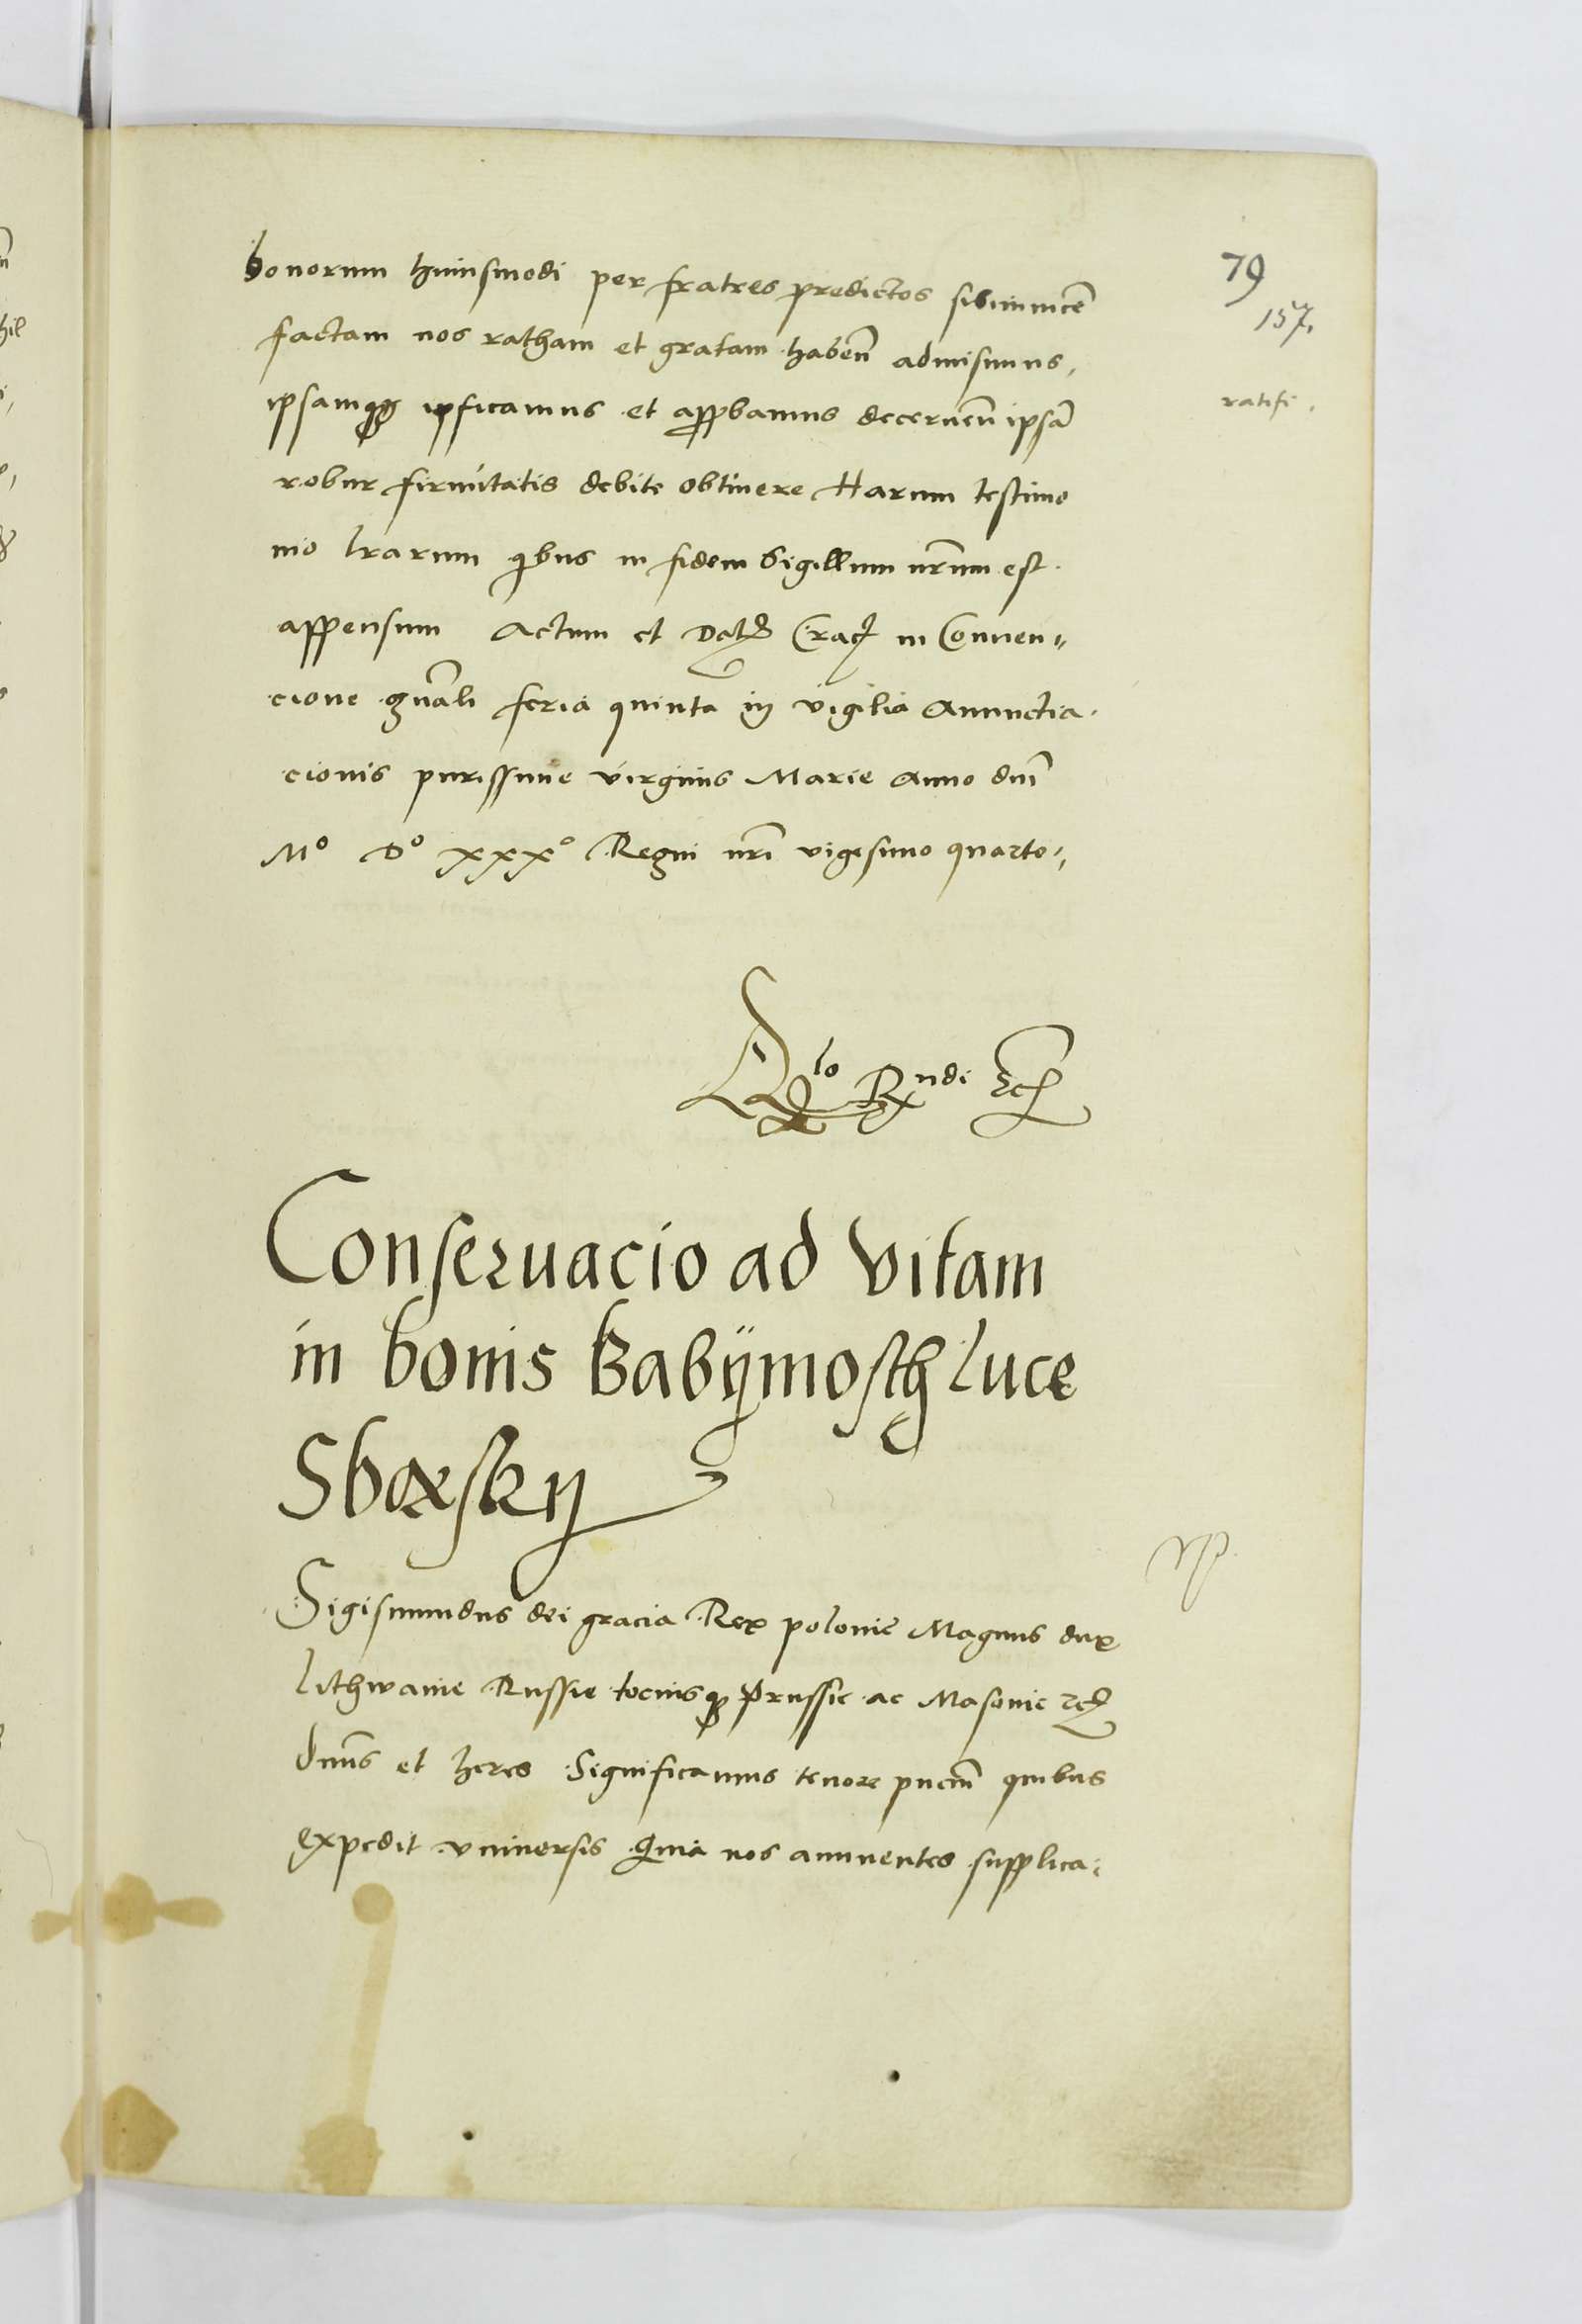 bonorum huiusmodi per fratres predictos sibiinuicē
79
157.
factam nos ratham et gratam habeñ admisimus,
ipsamqȝ ipsficamus et appbamus decerneñ ipsā
ratifi.
robur firmitatis debite obtinere Harum testimo
nio lrarum qbus in fidem Sigillum nr̄um est
appensum Actum et Datȝ Crac in Conuen„
cione gnāli feria quinta in vigilia Annuctia
cionis purissime virginis Marie Anno dnī
Mº Dº xxxº Regni nr̄i vigesimo quarto„
Rndi
Conseruacio ad vitam
in bonis Babÿmosth luce
Sbąskÿ
Sigismundus dei gracia Rex polonie Magnus dux
lithwanie Russie tociusqȝ prussie ac Masouie ꝛcȝ
dnus et heres Significamus tenore pnciū quibus
expedit vniuersis Quia nos annuentes supplica„